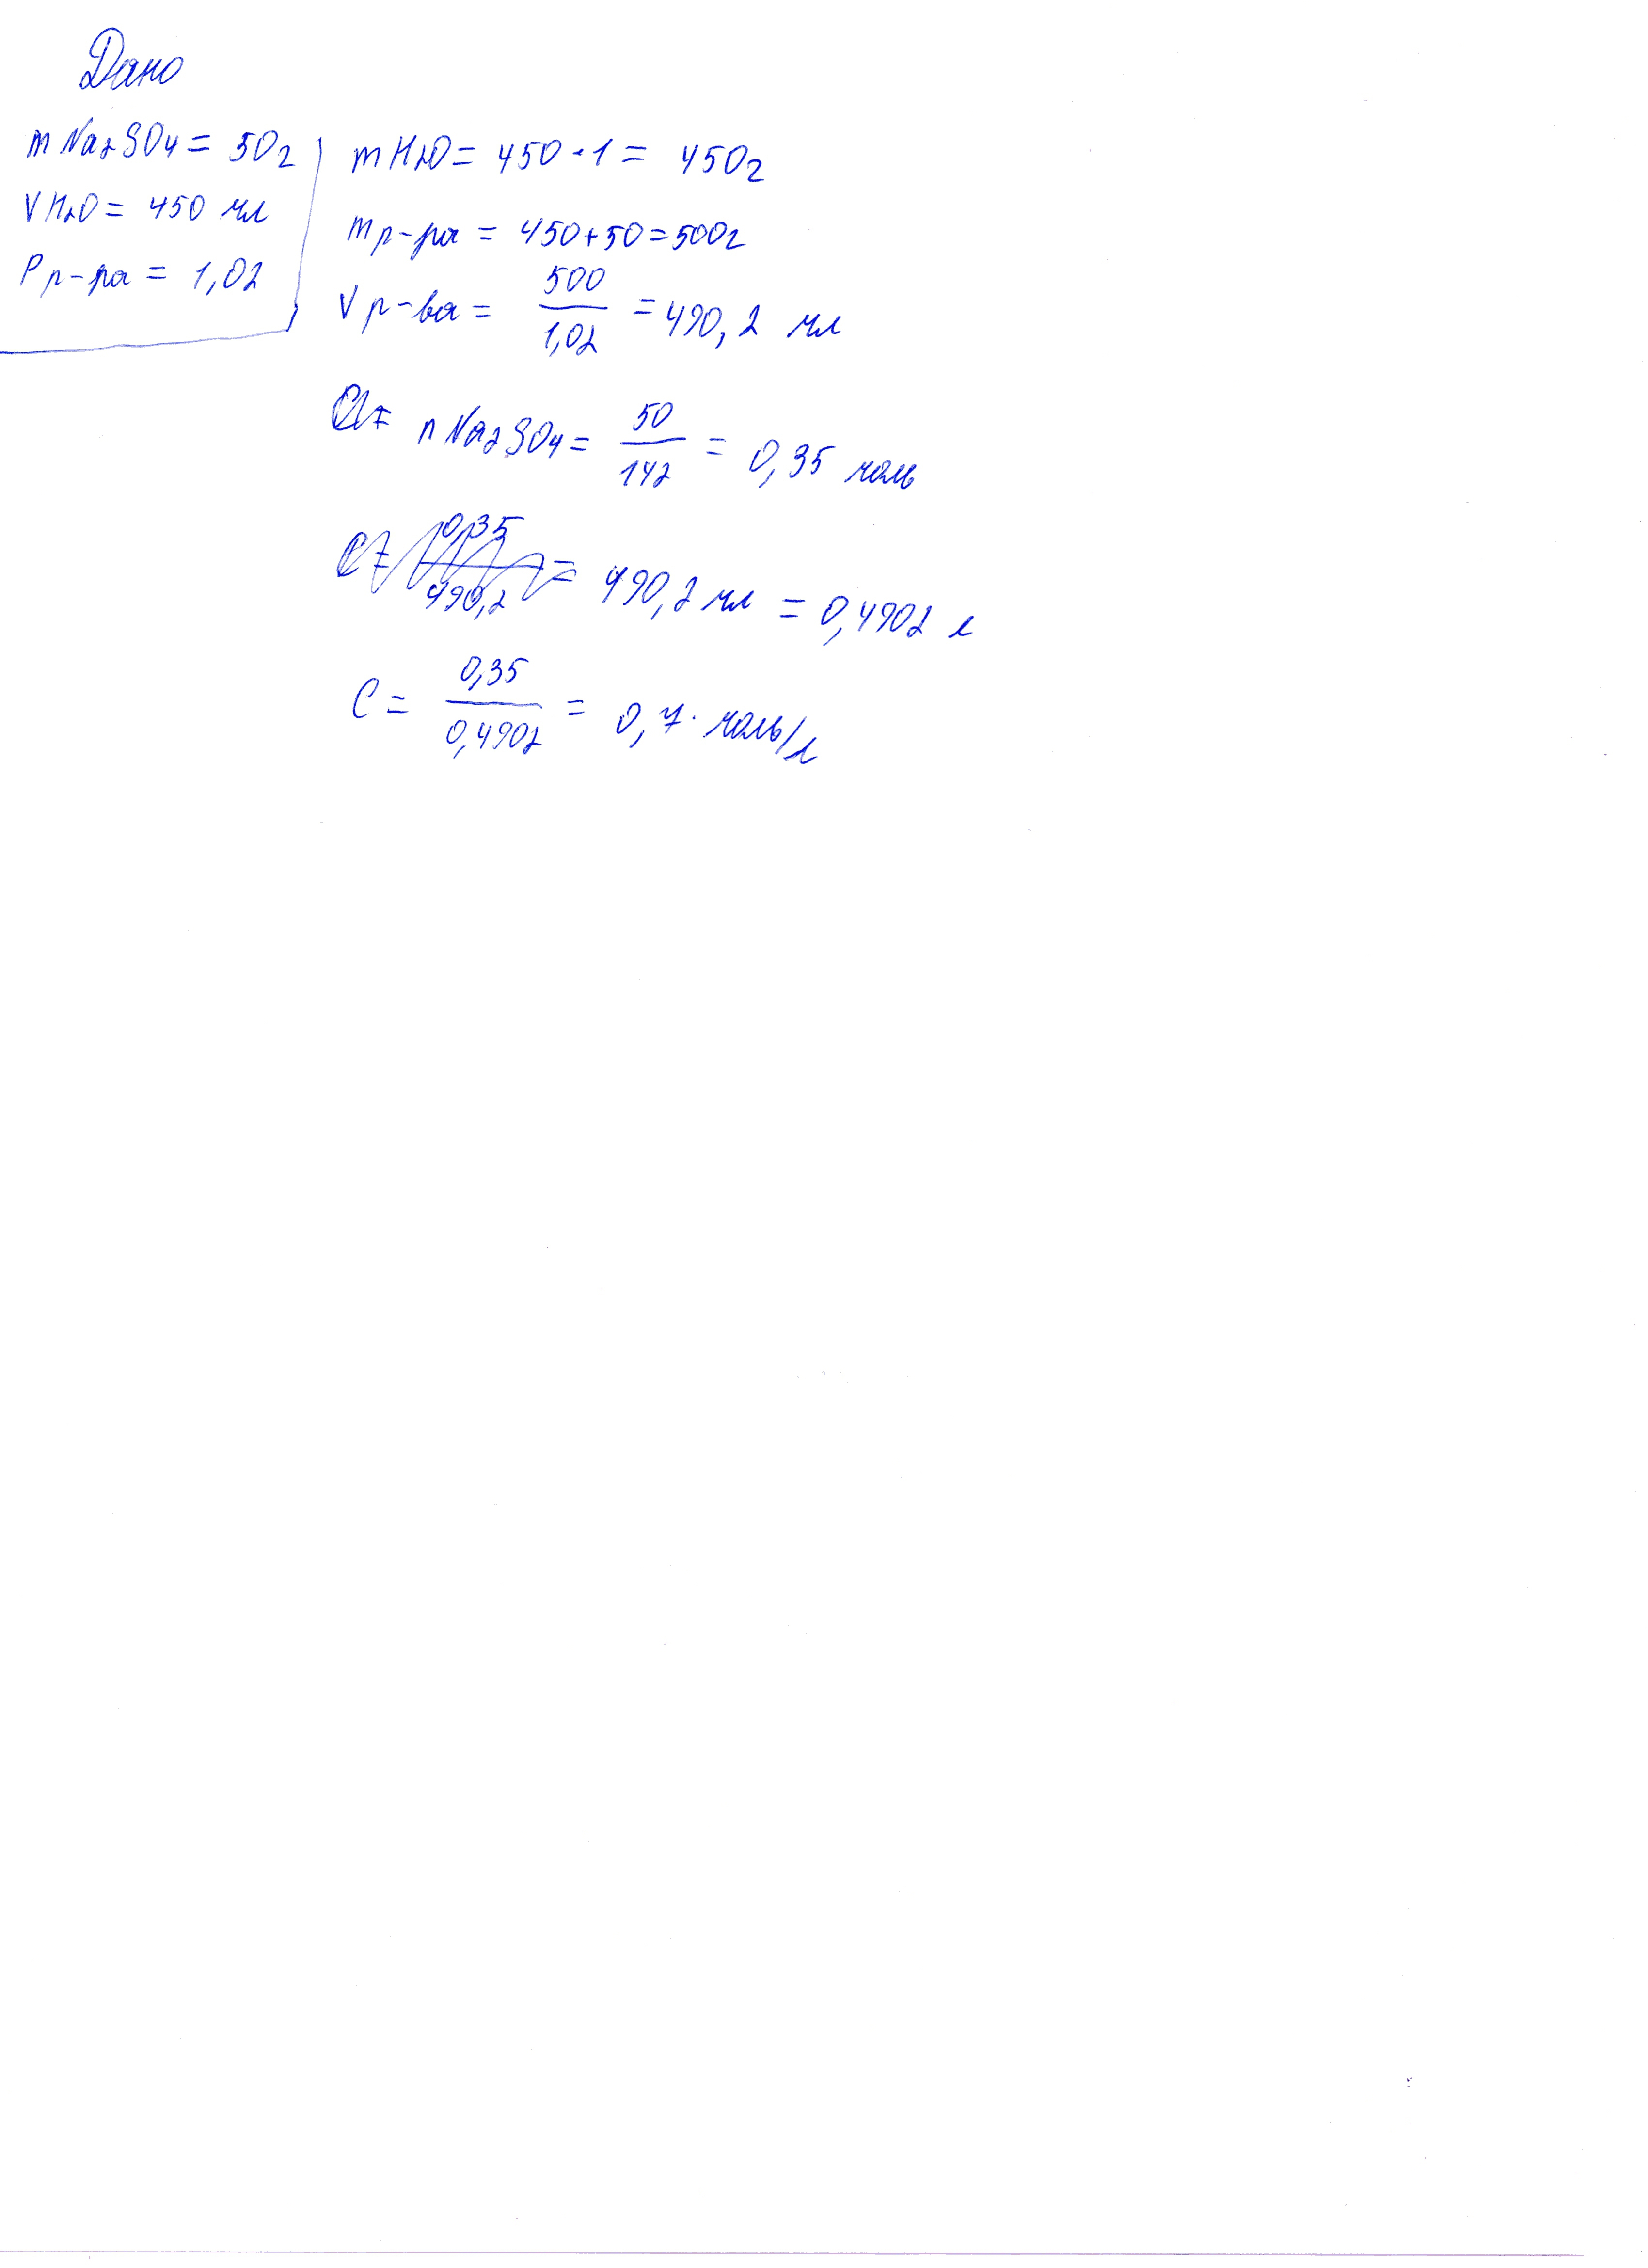 Дано
m Na2SO4 = 50г
V H2O = 450 мл
Pр-ра = 1,02
m H2O = 450 · 1 = 450г
mр-ра = 450+50=500г
Vр-ва = 500/1,02 = 490,2 мл
n Na2SO4 = 50/142 = 0,35 моль
0,35/490,2 = 490,2 мл = 0,4902 л
C = 0,35/0,4902 = 0,7 моль/л